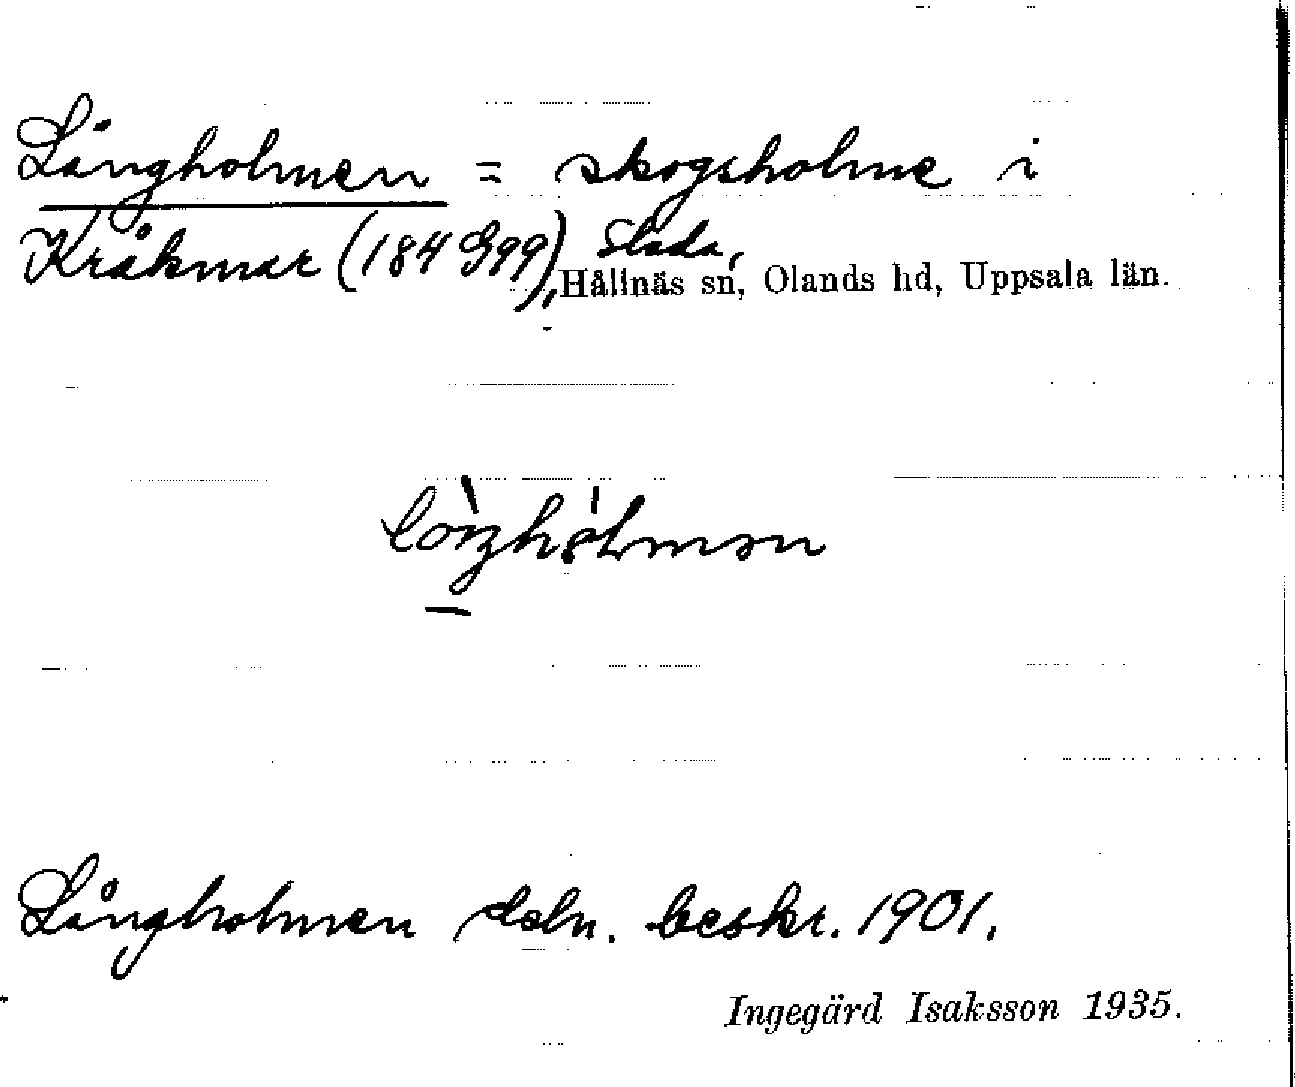 Långholmen = skogsholme i
Kråkmar (184 G99), Slada,
Hållnäs sn, Olands hd, Uppsala län.
Långholmen deln. beskr. 1901.
Ingegärd Isaksson 1935.